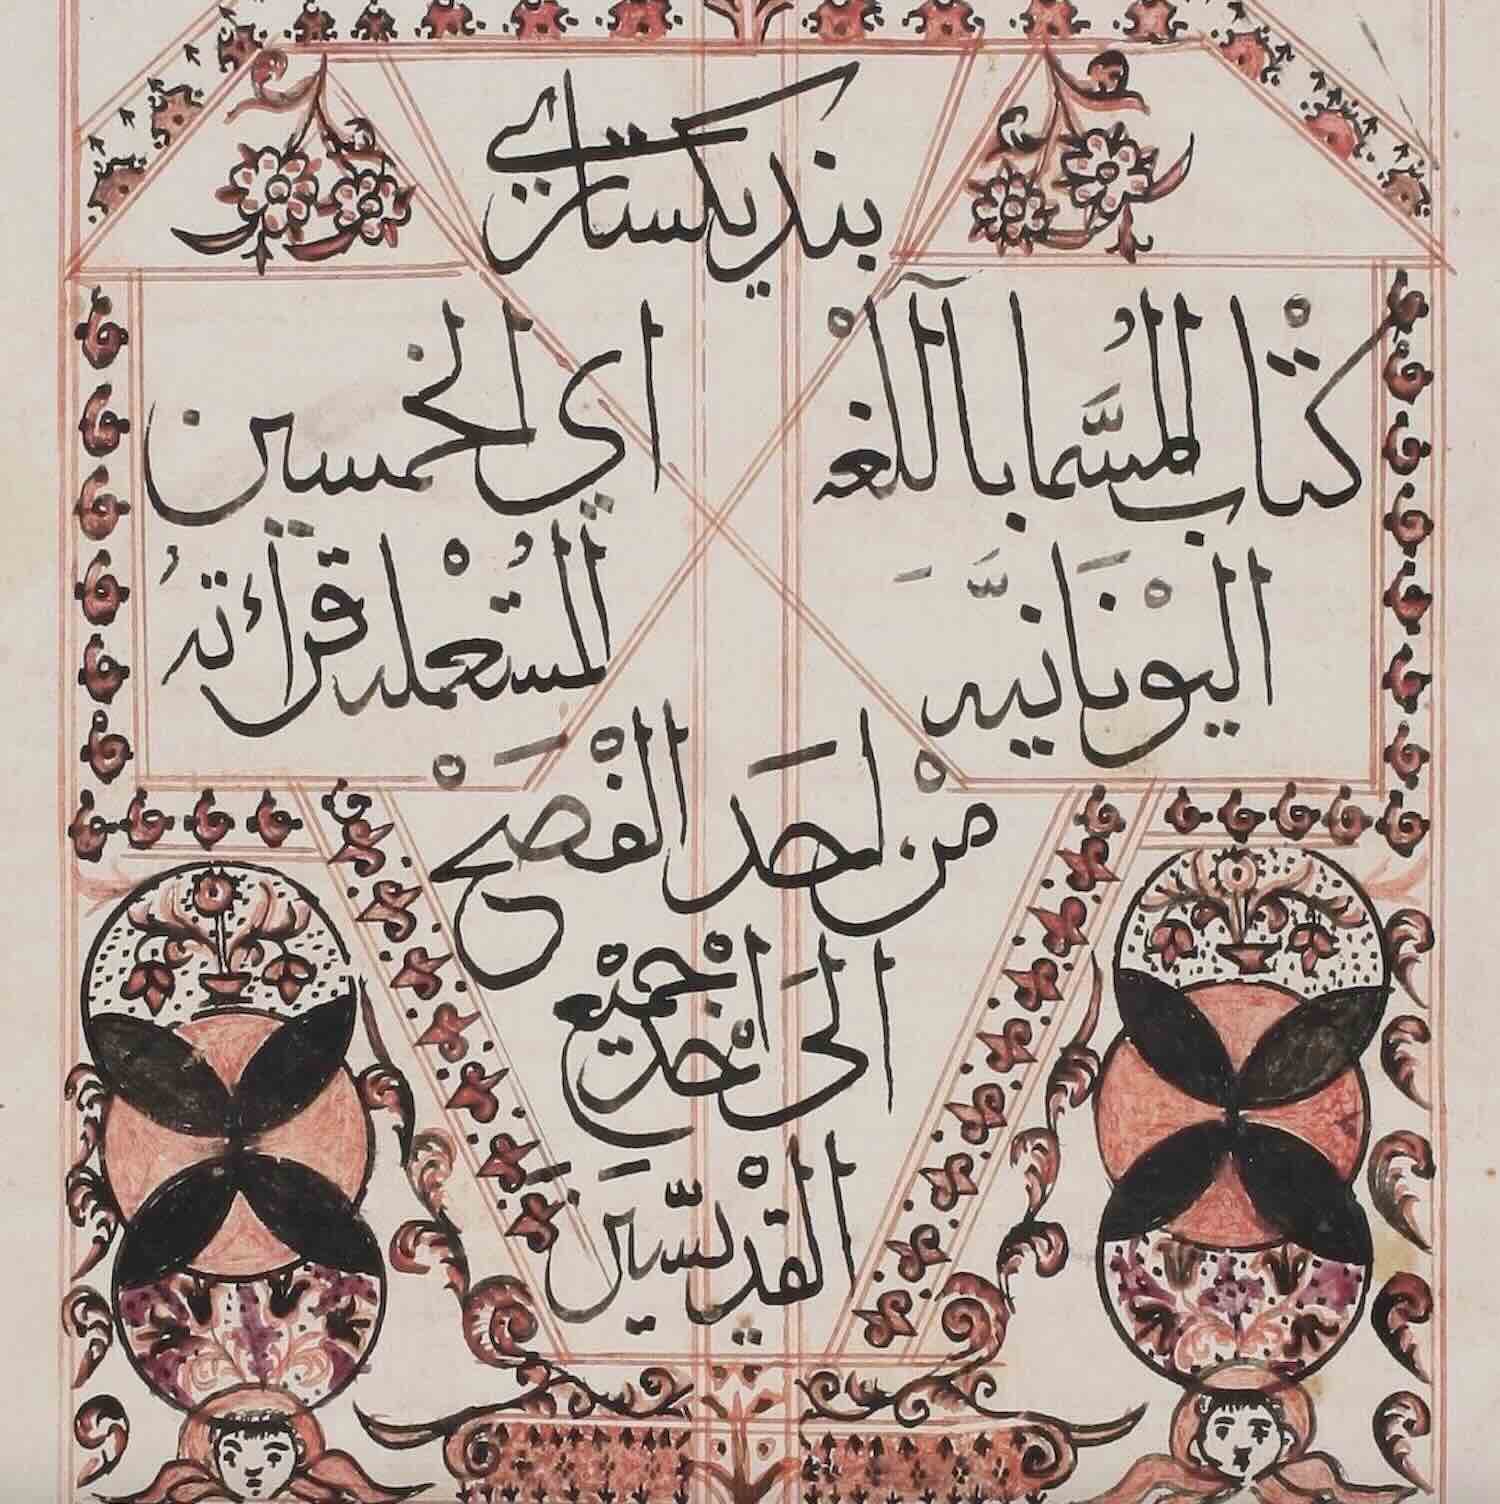 بنديكستاري
كتاب المُسَّما باللغه
اي الخمسين
اليوْنَانيَّه
المُستعمله قرائتهُ
منْ لحَد الفْصَحْ
الىَ احْد جميْع
القدْيسّين